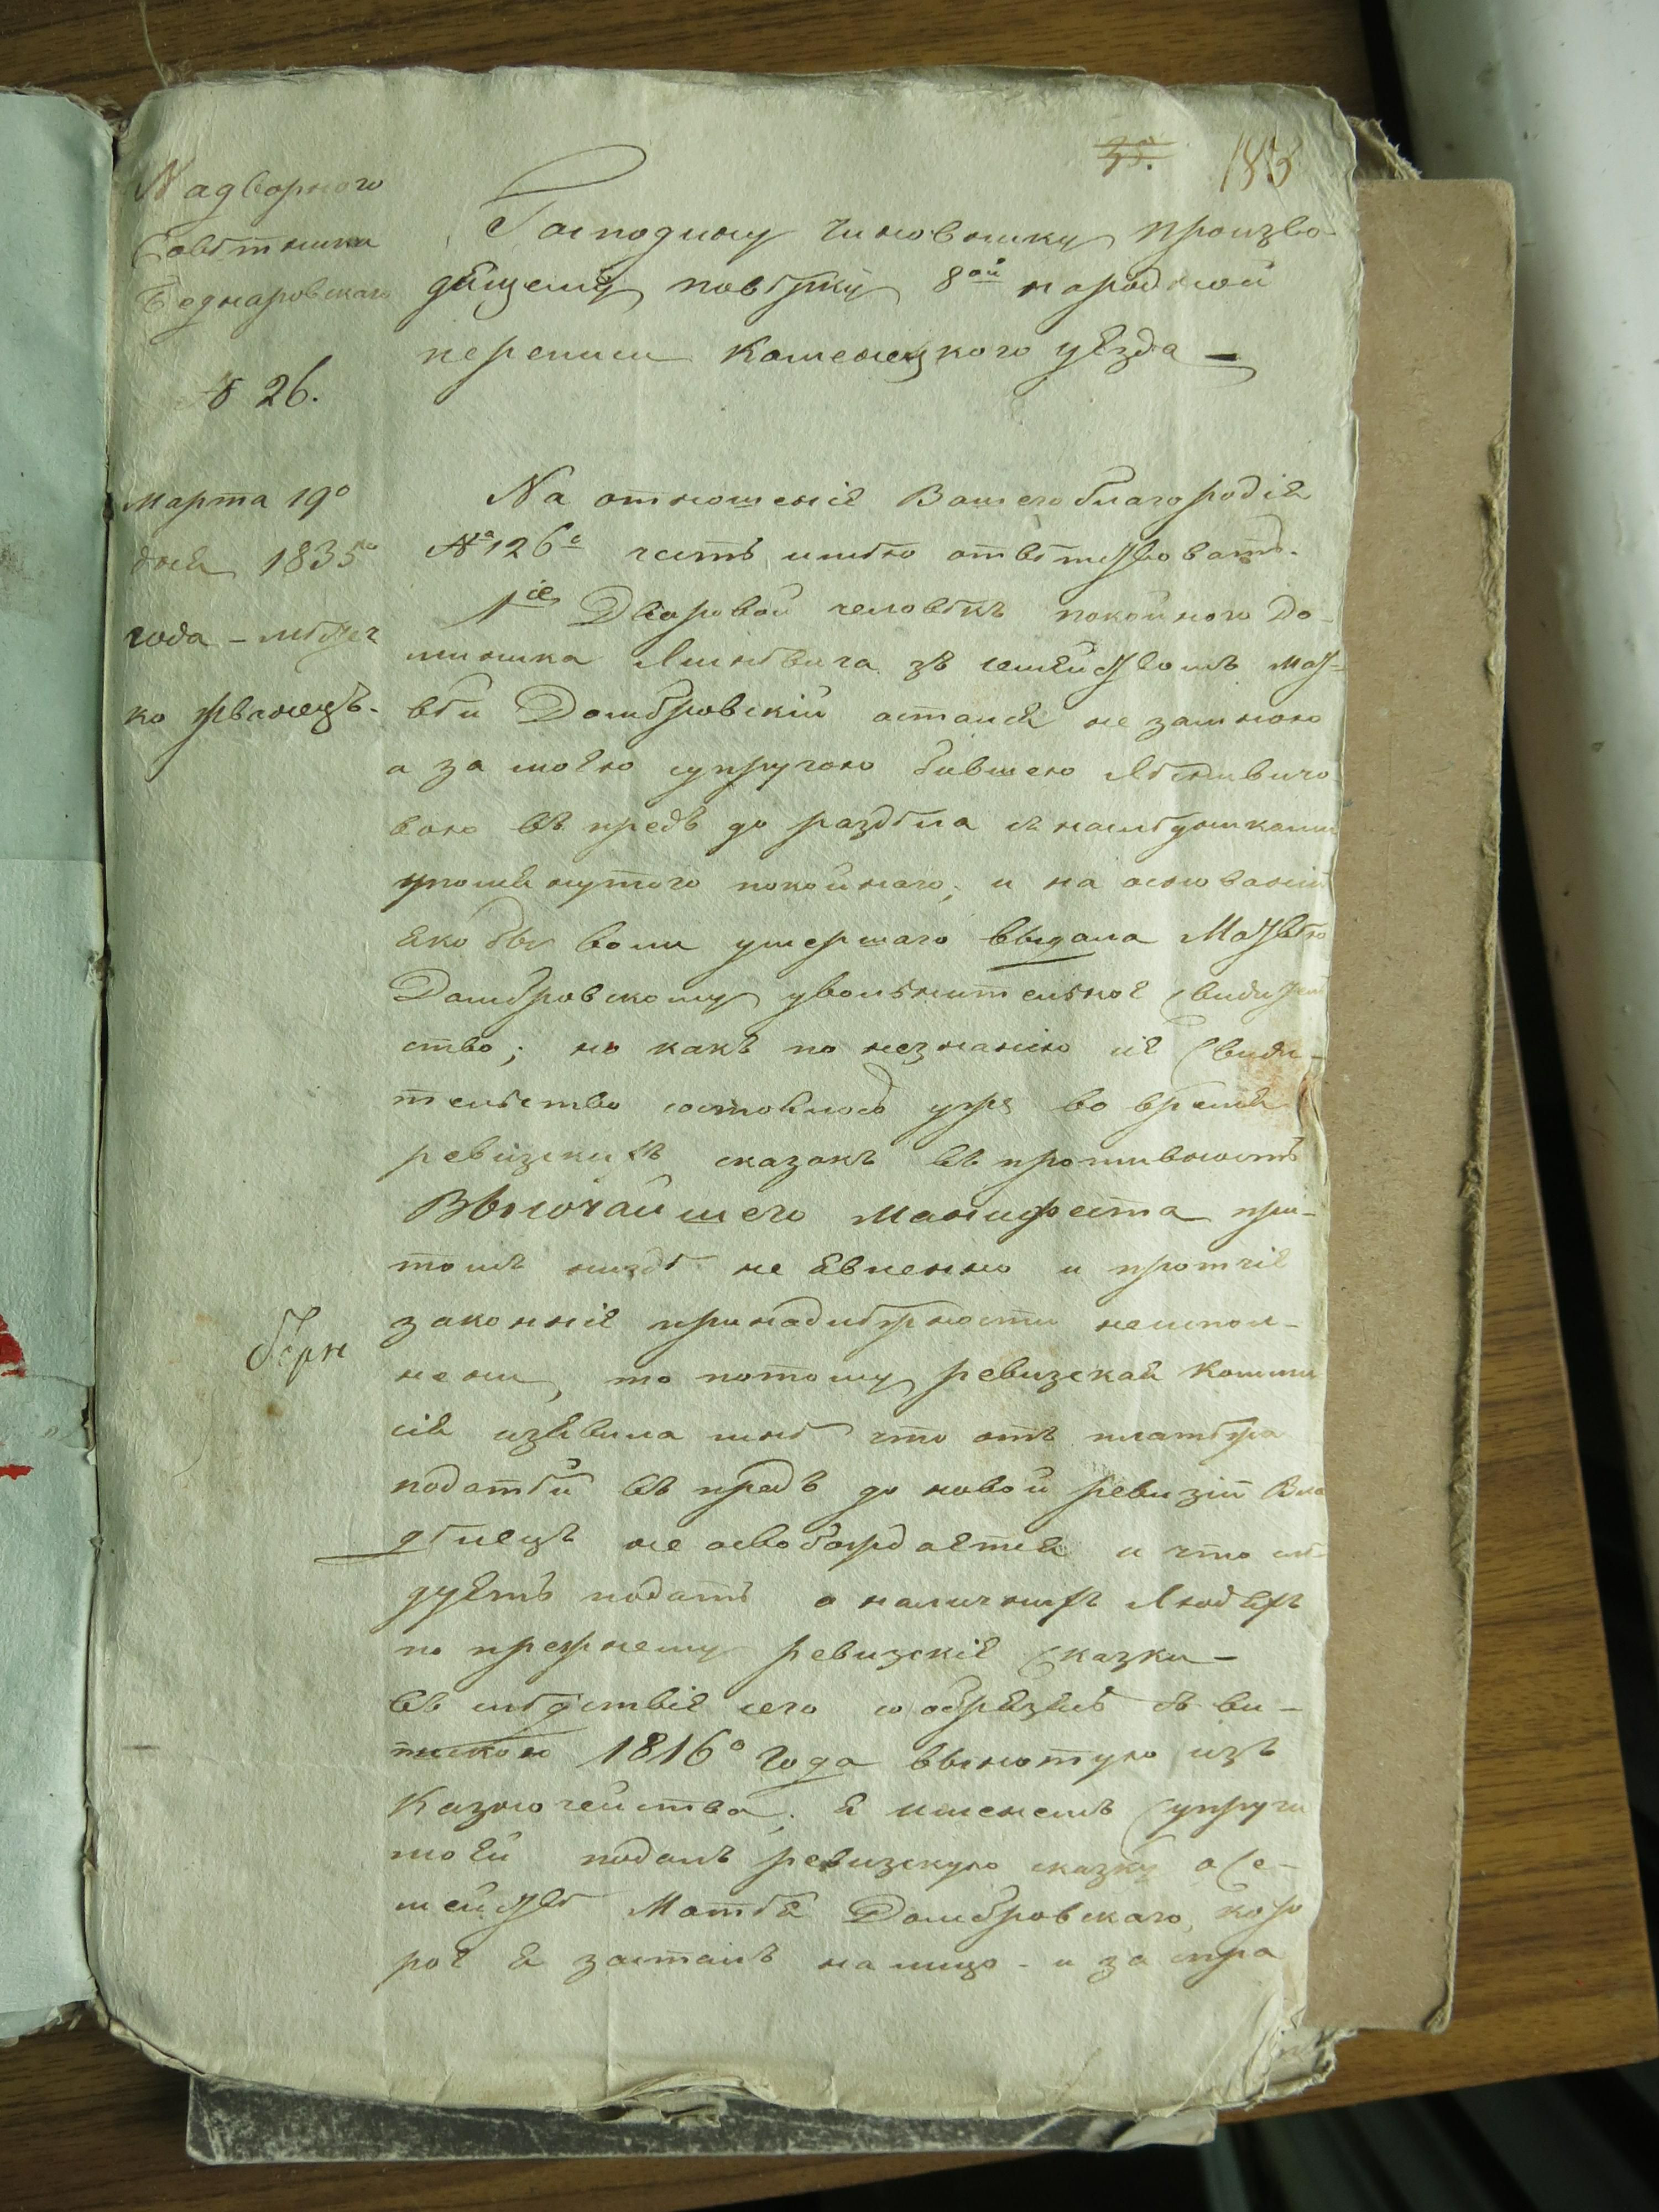 35. 183
Надворного
Совѣтника
Беднаровскаго
№ 26.
Марта 19º
дня 1835го
года – мѣстеч
ко Жванецъ.
Господину чиновнику произво-
дящему повѣрку 8ой народной
переписи Каменецкого уѣзда —
На отношеніе Вашего благородія
№ 126е честь имѣю отвѣтствовать.
1іе Дворовой человѣкъ покойного До-
миника зъ семействомъ Мат-
вѣй Домбровскій остался не за мною
а за моею супругою бившею
вою въ предъ до раздѣла съ наслѣдниками
упомянутого покойнаго, и на основаніи
якобы воли умершаго выдала Матвѣю
Домбровскому увольнительное свидетель
ство; но какъ по незнанію іе свиди-
тельство состоялось уже во время
ревизскихъ сказокъ въ противность
Высочайшего Манифеста при-
томъ нигдѣ не явленно и протчіе
законніе принадлѣжности неиспол-
нени, то потому ревизская Комми
сія изявила мнѣ что отъ платѣжа
податѣй въ предъ до новой ревизіи Вла
дѣлецъ не освобождается и что слѣ-
дуетъ подать о наличнихъ людяхъ
по прежнему ревизскіе сказки –
въ слѣдствіе сего сообразясь съ ви-
пискою 1816º года вынотую изъ
Казначейства, я именемъ супруги
моей подалъ ревизскую сказку о Се-
мействѣ Матвѣя Домбровскаго, кото
рое я засталъ на лицо – и за спра